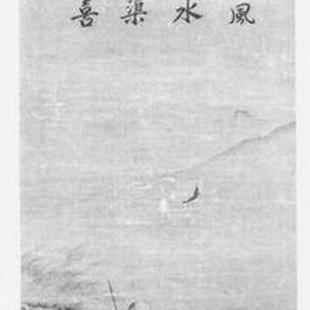 風水渠喜